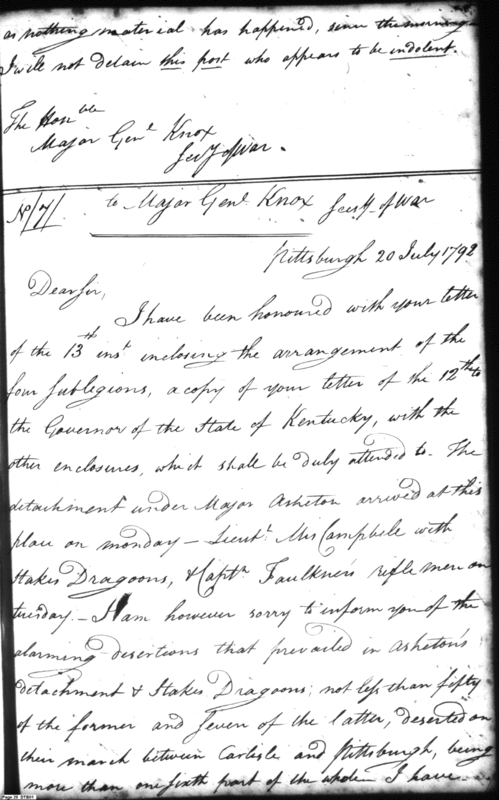 as nothing material has happened, since the morning
I will not detain this post who appears to be indolent.
The Honble
Major Genl. Knox
Secy of War.
No/7/ to Major Genl. Knox Secy. of War
Pittsburgh 20 July 1792
Dear Sir,
I have been honoured with your letter
of the 13th inst. inclosing the arrangement of the
four Sublegions, a copy of your letter of the 12th to
the Governor of the State of Kentucky, with the
other enclosures, which shall be duly attended to. The
detachment under Major Asheton arrived at this
place on monday – Lieut. McCampbele with
Stakes Dragoons, & Captn. Faulkner's rifle men on
tuesday. – I am however sorry to inform you of the
alarming desertions that prevailed in Asheton's
detachment & Stakes Dragoons; not less than fifty
of the former and seven of the latter, deserted on
their march between Carlisle and Pittsburgh, being
more than one sixth part of the whole I have
Page 29 ST801